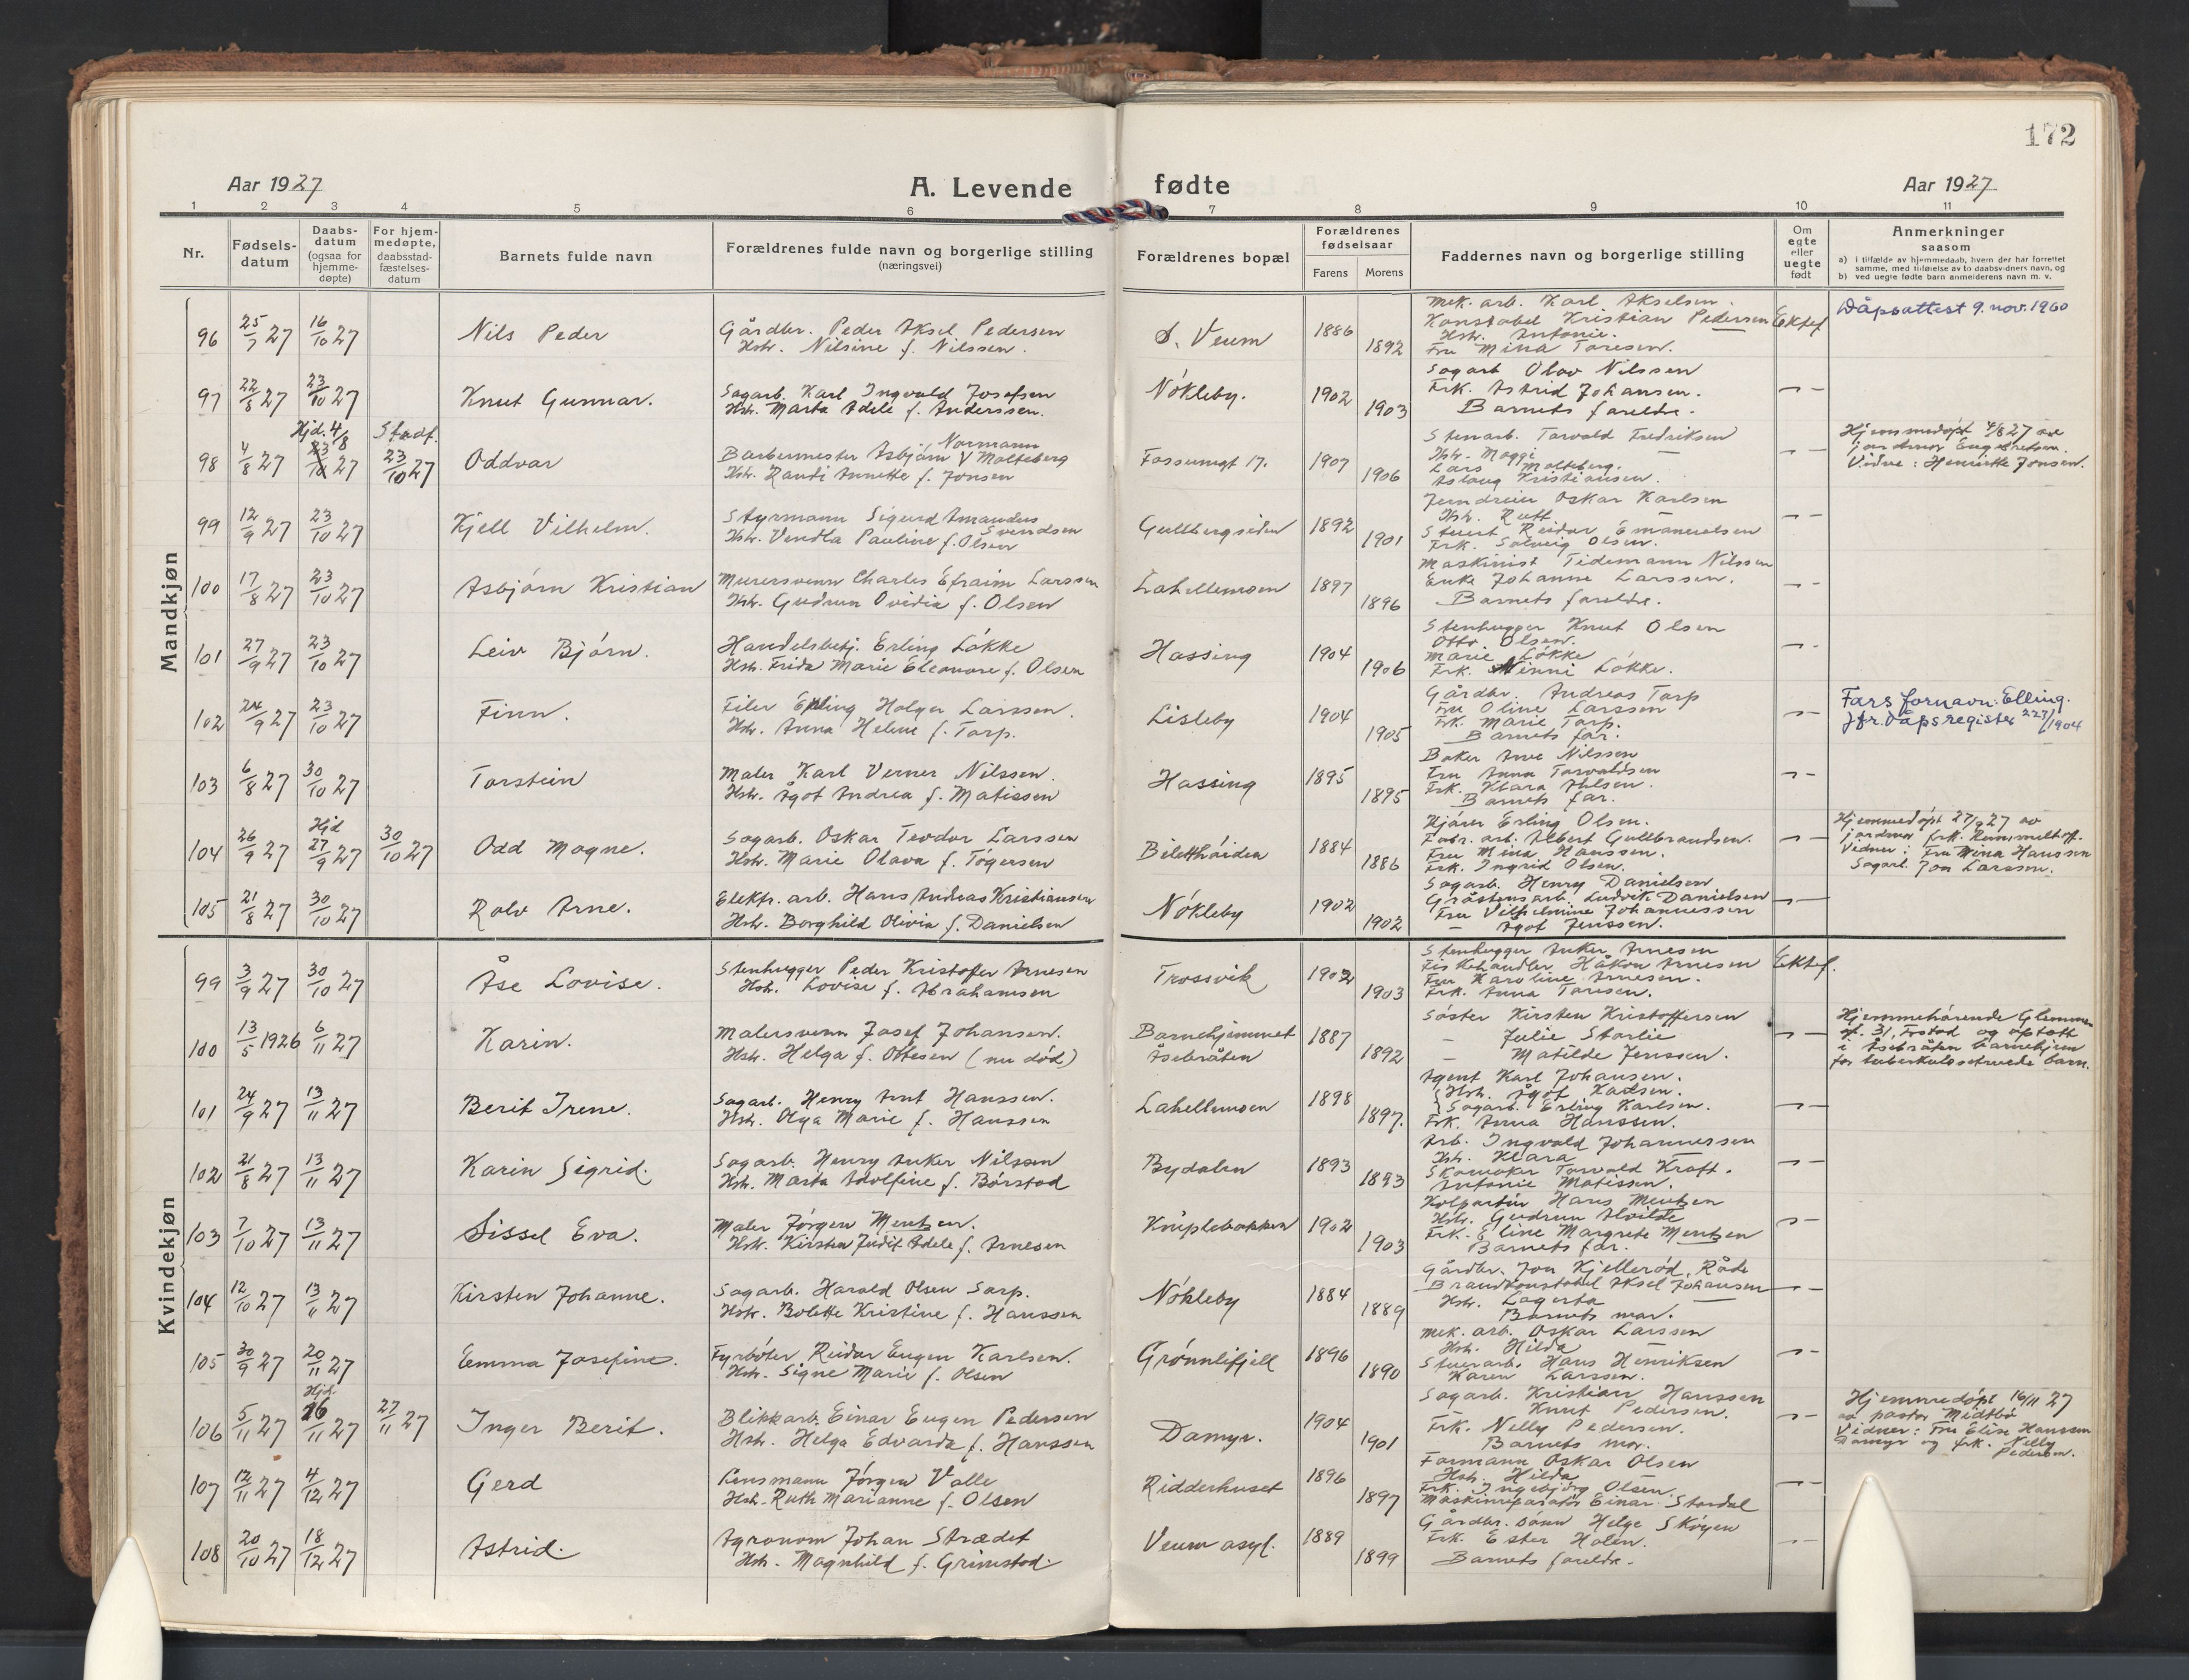 172
Aar 1927
A. Levende fødte
Aar 1927
1 2 3 4 5 6 7 8 9 10 11
Nr.
Fødsels-datum
Daabs-datum (ogsaa for hjemme-døpte)
For hjem-medøpte, daabsstad-fæstelses-datum
Barnets fulde navn
Forældrenes fulde navn og borgerlige stilling
(næringsvei)
Forældrenes bopæl
Forældrenes fødselsaar
Farens Morens
Faddernes navn og borgerlige stilling
Om egte eller uegte født
Anmerkninger
saasom
a) i tilfælde av hjemmedaab, hvem der har forrettet samme, med tilføielse av to daabsvidners navn, og
b) ved uegte fødte barn anmelderens navn m. v.
Mandkjøn
96 25/7 27 16/10 27 Nils Peder
Gårdbr. Peder Aksel Pedersen
Hstr. Nilsine f. Nilssen.
S. Veum 1886 1892
Mek. arb. Karl Akselsen.
Konstabel Kristian Pedersen
Hstr. Antonie.
Fru Mina Toresen.
Ektef.
Dåpsattest 9. nov. 1960
97 22/8 27 23/10 27 Knut Gunnar.
Sagarb. Karl Ingvald Josefsen
Hstr. Marta Adele f. Anderssen.
Nökleby. 1902 1903
Sagarb Olav Nilssen
Frk. Astrid Johansen.
Barnets foreldre.
98 4/8 27 Hjd. 4/8 23/10 27 Stadf. 23/10 27 Oddvar
Barbermester Asbjörn V Normann Molteberg
Hstr. Randi Annette f. Jonsen
Fossumgt 17. 1907 1906
Stenarb. Torvald Fredriksen
Hstr. Maggi
Lars Molteberg.
Aslaug Kristiansen.
Hjemmedöpt 4/8 27 av
jordmor Engebretsen.
Vidne: Henriette Jonsen.
99 12/9 27 23/10 27 Kjell Vilhelm.
Styrmann Sigurd Amandus Svendsen
Hstr. Vendla Pauline f. Olsen
Gullbergsiden 1892 1901
Jerndreier Oskar Karlsen
Hstr. Rutt
Stuert Reidar Emanuelsen
Frk. Solveig Olsen.
100 17/8 27 23/10 27 Asbjörn Kristian
Murersvenn Charles Efraim Larssen
Hstr. Gudrun Ovidia f. Olsen
Lahellemoen 1897 1896
Maskinist Tidemann Nilssen
Enke Johanne Larssen.
Barnets foreldre.
101 27/9 27 23/10 27 Leiv Björn.
Handelsbetj. Erling Lökke
Hstr. Frida Marie Eleonore f. Olsen
Hassing 1904 1906
Stenhugger Knut Olsen
Otto Olsen.
Marie Lökke
Frk. Minni Lökke.
102 24/9 27 23/10 27 Finn.
Filer Erling Holger Larssen.
Hstr. Anna Helene f. Torp.
Lisleby 1904 1905
Gårdbr. Andreas Torp
Fru Oline Larssen
Frk. Marie Torp.
Barnets far.
Fars fornavn: Elling.
Jfr. Dåpsregister 227/1904
103 6/8 27 30/10 27 Torstein
Maler Karl Verner Nilssen.
Hstr. Ågot Andrea f. Matissen
Hassing 1895 1895
Baker Arve Nilssen
Fru Anna Torvaldsen
Frk. Klara Ahlsen.
Barnets far.
104 26/9 27 Hjd 27/9 27 30/10 27 Odd Magne.
Sagarb. Oskar Teodor Larssen
Hstr. Marie Olava f. Tögersen
Biletthöiden 1884 1886
Kjörer Erling Olsen.
Fabr. arb. Albert Gullbrandsen.
Fru Mina Hanssen.
Frk. Ingrid Olsen.
Hjemmedöpt 27/9 27 av
jordmor frk. Rummelhoff.
Vidner: Fru Mina Hanssen
Sagarb. Jon Larssen.
105 21/8 27 30/10 27 Rolv Arne.
Elektr. arb. Hans Andreas Kristiansen
Hstr. Borghild Olivia f. Danielsen
Nökleby 1902 1902
Sagarb. Henry Danielsen
Gråstensarb. Ludvik Danielsen
Fru Vilhelmine Johannessen
— Ågot Jenssen.
Kvindekjøn
99 3/9 27 30/10 27 Åse Lovise.
Stenhugger Peder Kristofer Arnesen
Hstr. Lovise f. Abrahamsen
Trossvik 1902 1903
Stenhugger Anker Arnesen
Fiskehandler Håkon Arnesen
Fru Karoline Arnesen.
Frk. Anna Toresen.
Ektef.
100 13/5 1926 6/11 27 Karin.
Malersvenn Josef Johansen.
Hstr. Helga f. Ottesen (nu död)
Barnehjemmet Åsebråten 1887 1892
Söster Kirsten Kristoffersen
— Julie Storlie
— Matilde Jenssen.
Hjemmehörende Glemmen
og optatt
i Åsebråten barnehjem
for tuberkulosetruede barn.
101 24/9 27 13/11 27 Berit Irene.
Sagarb. Henry Arnt Hanssen.
Hstr. Olga Marie f. Hanssen
Lahellemoen 1898 1897.
Agent Karl Johansen.
Hstr. Ågot Karlsen.
Sagarb. Erling Karlsen.
Frk. Anna Hanssen.
102 21/8 27 13/11 27 Karin Sigrid.
Sagarb. Henry Anker Nilssen
Hstr. Marta Adolfine f. Borstad
Bydalen 1893 1893
Arb. Ingvald Johannessen
Hstr. Klara
Skomaker Torvald Kraft.
Antonie Matissen.
103 7/10 27 13/11 27 Sissel Eva.
Maler Jörgen Mentzen.
Hstr. Kirsten Judit Adele f. Arnesen
Kniplebakken 1902 1903
Kolportör Hans Mentzen
Hstr. Gudrun Alvilde
Frk. Eline Margrete Mentzen
Barnets far.
104 12/10 27 13/11 27 Kirsten Johanne.
Sagarb. Harald Olsen Sarp.
Hstr. Bolette Kristine f. Hanssen
Nökleby 1884 1889
Gårdbr. Jon Kjelleröd, Råde
Brandkonstabel Aksel Johansen
Hstr. Lagerta
Barnets mor.
105 30/9 27 20/11 27 Emma Josefine.
Fyrböter Reidar Eugen Karlsen.
Hstr. Signe Marie f. Olsen
Grönnlifjell 1896 1890
Mek. arb. Oskar Larssen
Hstr. Hilda
Stuerarb. Hans Henriksen
Karen Larssen.
106 5/11 27 Hjd. 16/11 27 27/11 27 Inger Berit.
Blikkarb. Einar Eugen Pedersen
Hstr. Helga Edvarda f. Hanssen
Damyr. 1904 1901
Sagarb. Kristian Hanssen
Knut Pedersen.
Frk. Nelly Pedersen.
Barnets mor.
Hjemmedöpt 16/11 27
av pastor Midtbö
Vidner: Fru Elise Hanssen
Damyr og frk. Nelly
Pedersen.
107 12/11 27 4/12 27 Gerd
Lensmann Jörgen Valle
Hstr. Ruth Marianne f. Olsen
Ridderhuset 1896 1897
Formann Oskar Olsen
Hstr. Hilda
Frk. Ingebjörg Olsen.
Maskinreparatör Einar Stordal
108 20/10 27 18/12 27 Astrid.
Agronom Johan Strædet
Hstr. Magnhild f. Grimstad.
Veum asyl. 1889 1899
Gårdbr. sönn Helge Skögen
Frk. Ester Holen.
Barnets foreldre.